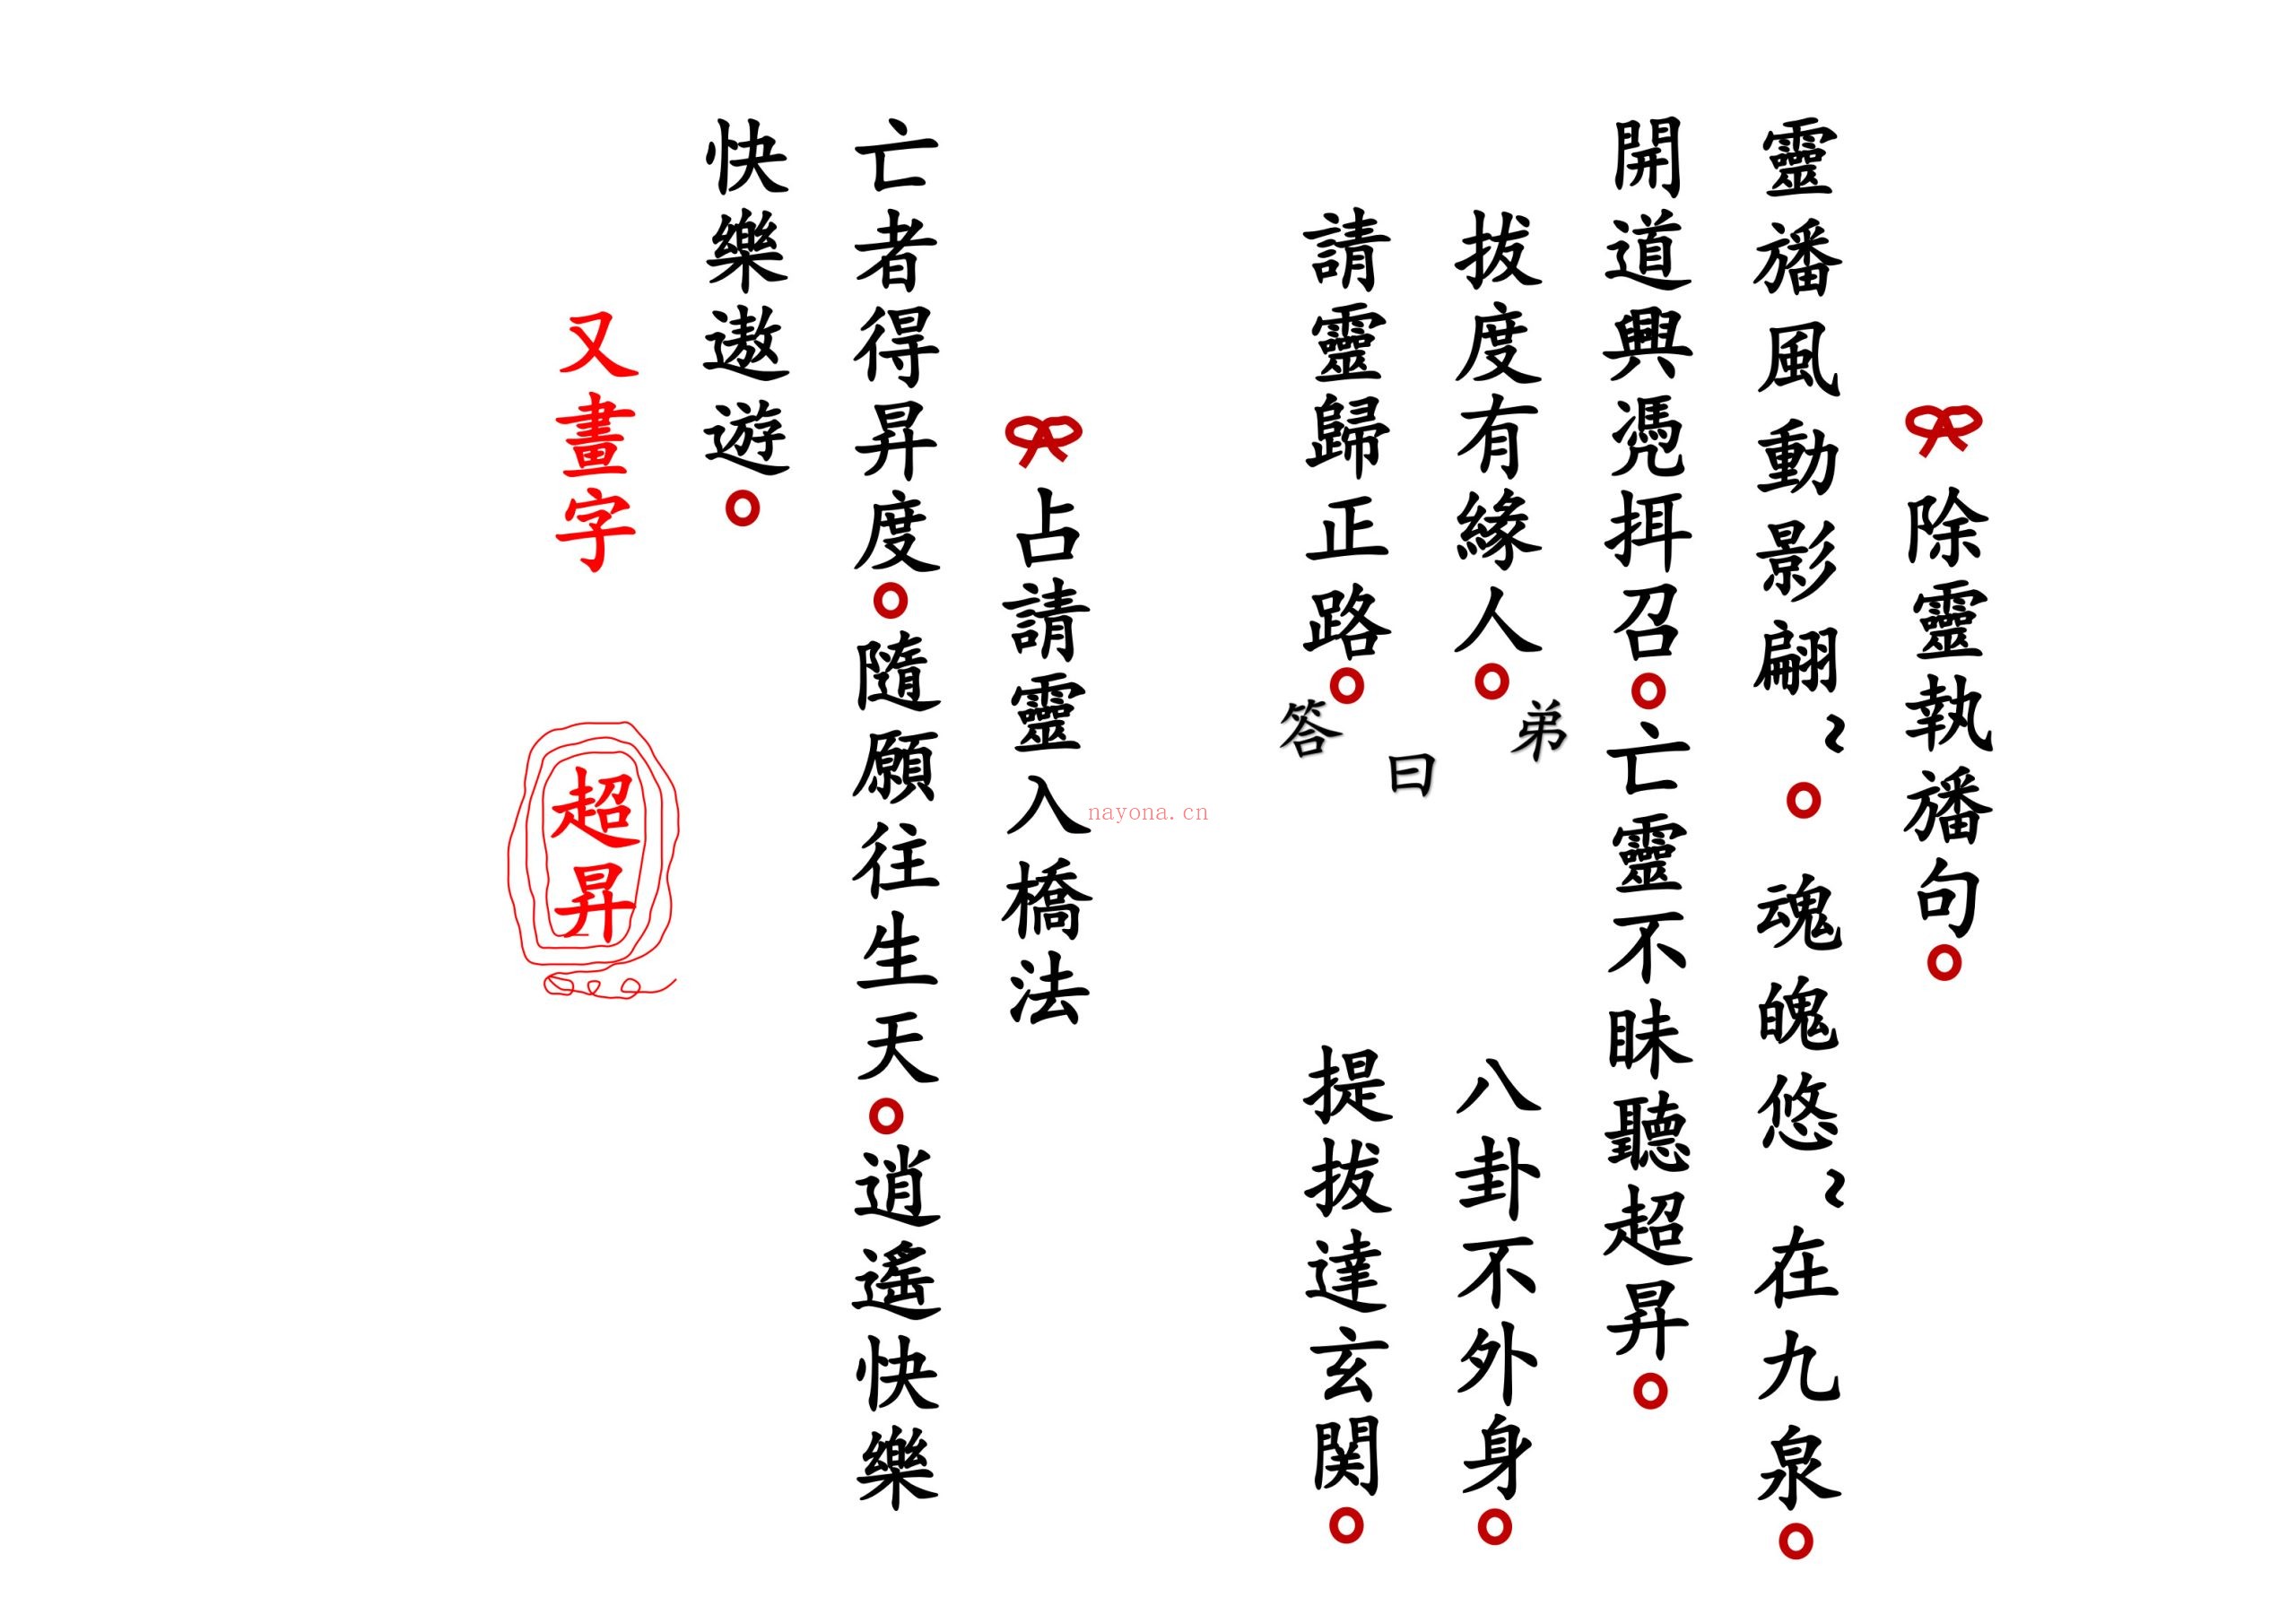 除靈執旛句。
靈旛風動影翩〻。魂魄悠〻在九泉。
開道興凴挕召。亡靈不昧聽超昇。
拔度有緣人。 八卦不外身。
弟曰答
請靈歸正路。 提拔達玄関。
占請靈入橋法
亡者得昇度。隨願往生天。逍遙快樂
快樂遨遊。
又畫字
超昇
nayona.cn